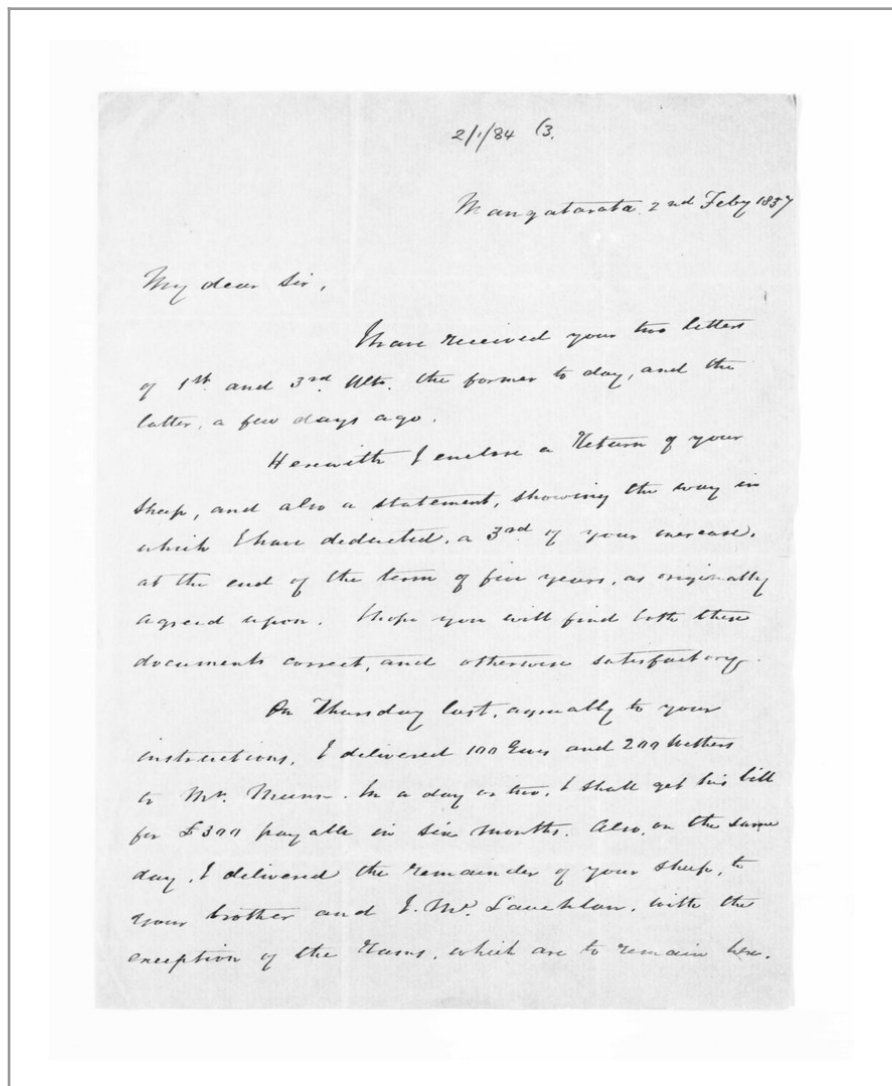 2/1/84 (3.
Mangatarata 2nd Feby 1857
My dear Sir,
I have received your two letters
of 1st. and 3rd. Ulto. the former to day, and the
latter, a few days ago.
Herewith I enclose a Return of your
Sheep, and also a statement, showing the way in
which I have deducted, a 3rd of your increase,
at the end of the term of five years, as originally
agreed upon. I hope you will find both these
documents correct, and otherwise satisfactory.
On Thursday last, agreeably to your
instructions, I delivered 100 Ewes and 200 Wethers
to Mr. Munn. In a day or two, I shall get his bill
for £300 payable in six months. Also, on the same
day, I delivered the remainder of your sheep, to
your brother and J. Mc. Lauchlan, with the
exception of the Rams, which are to remain here.